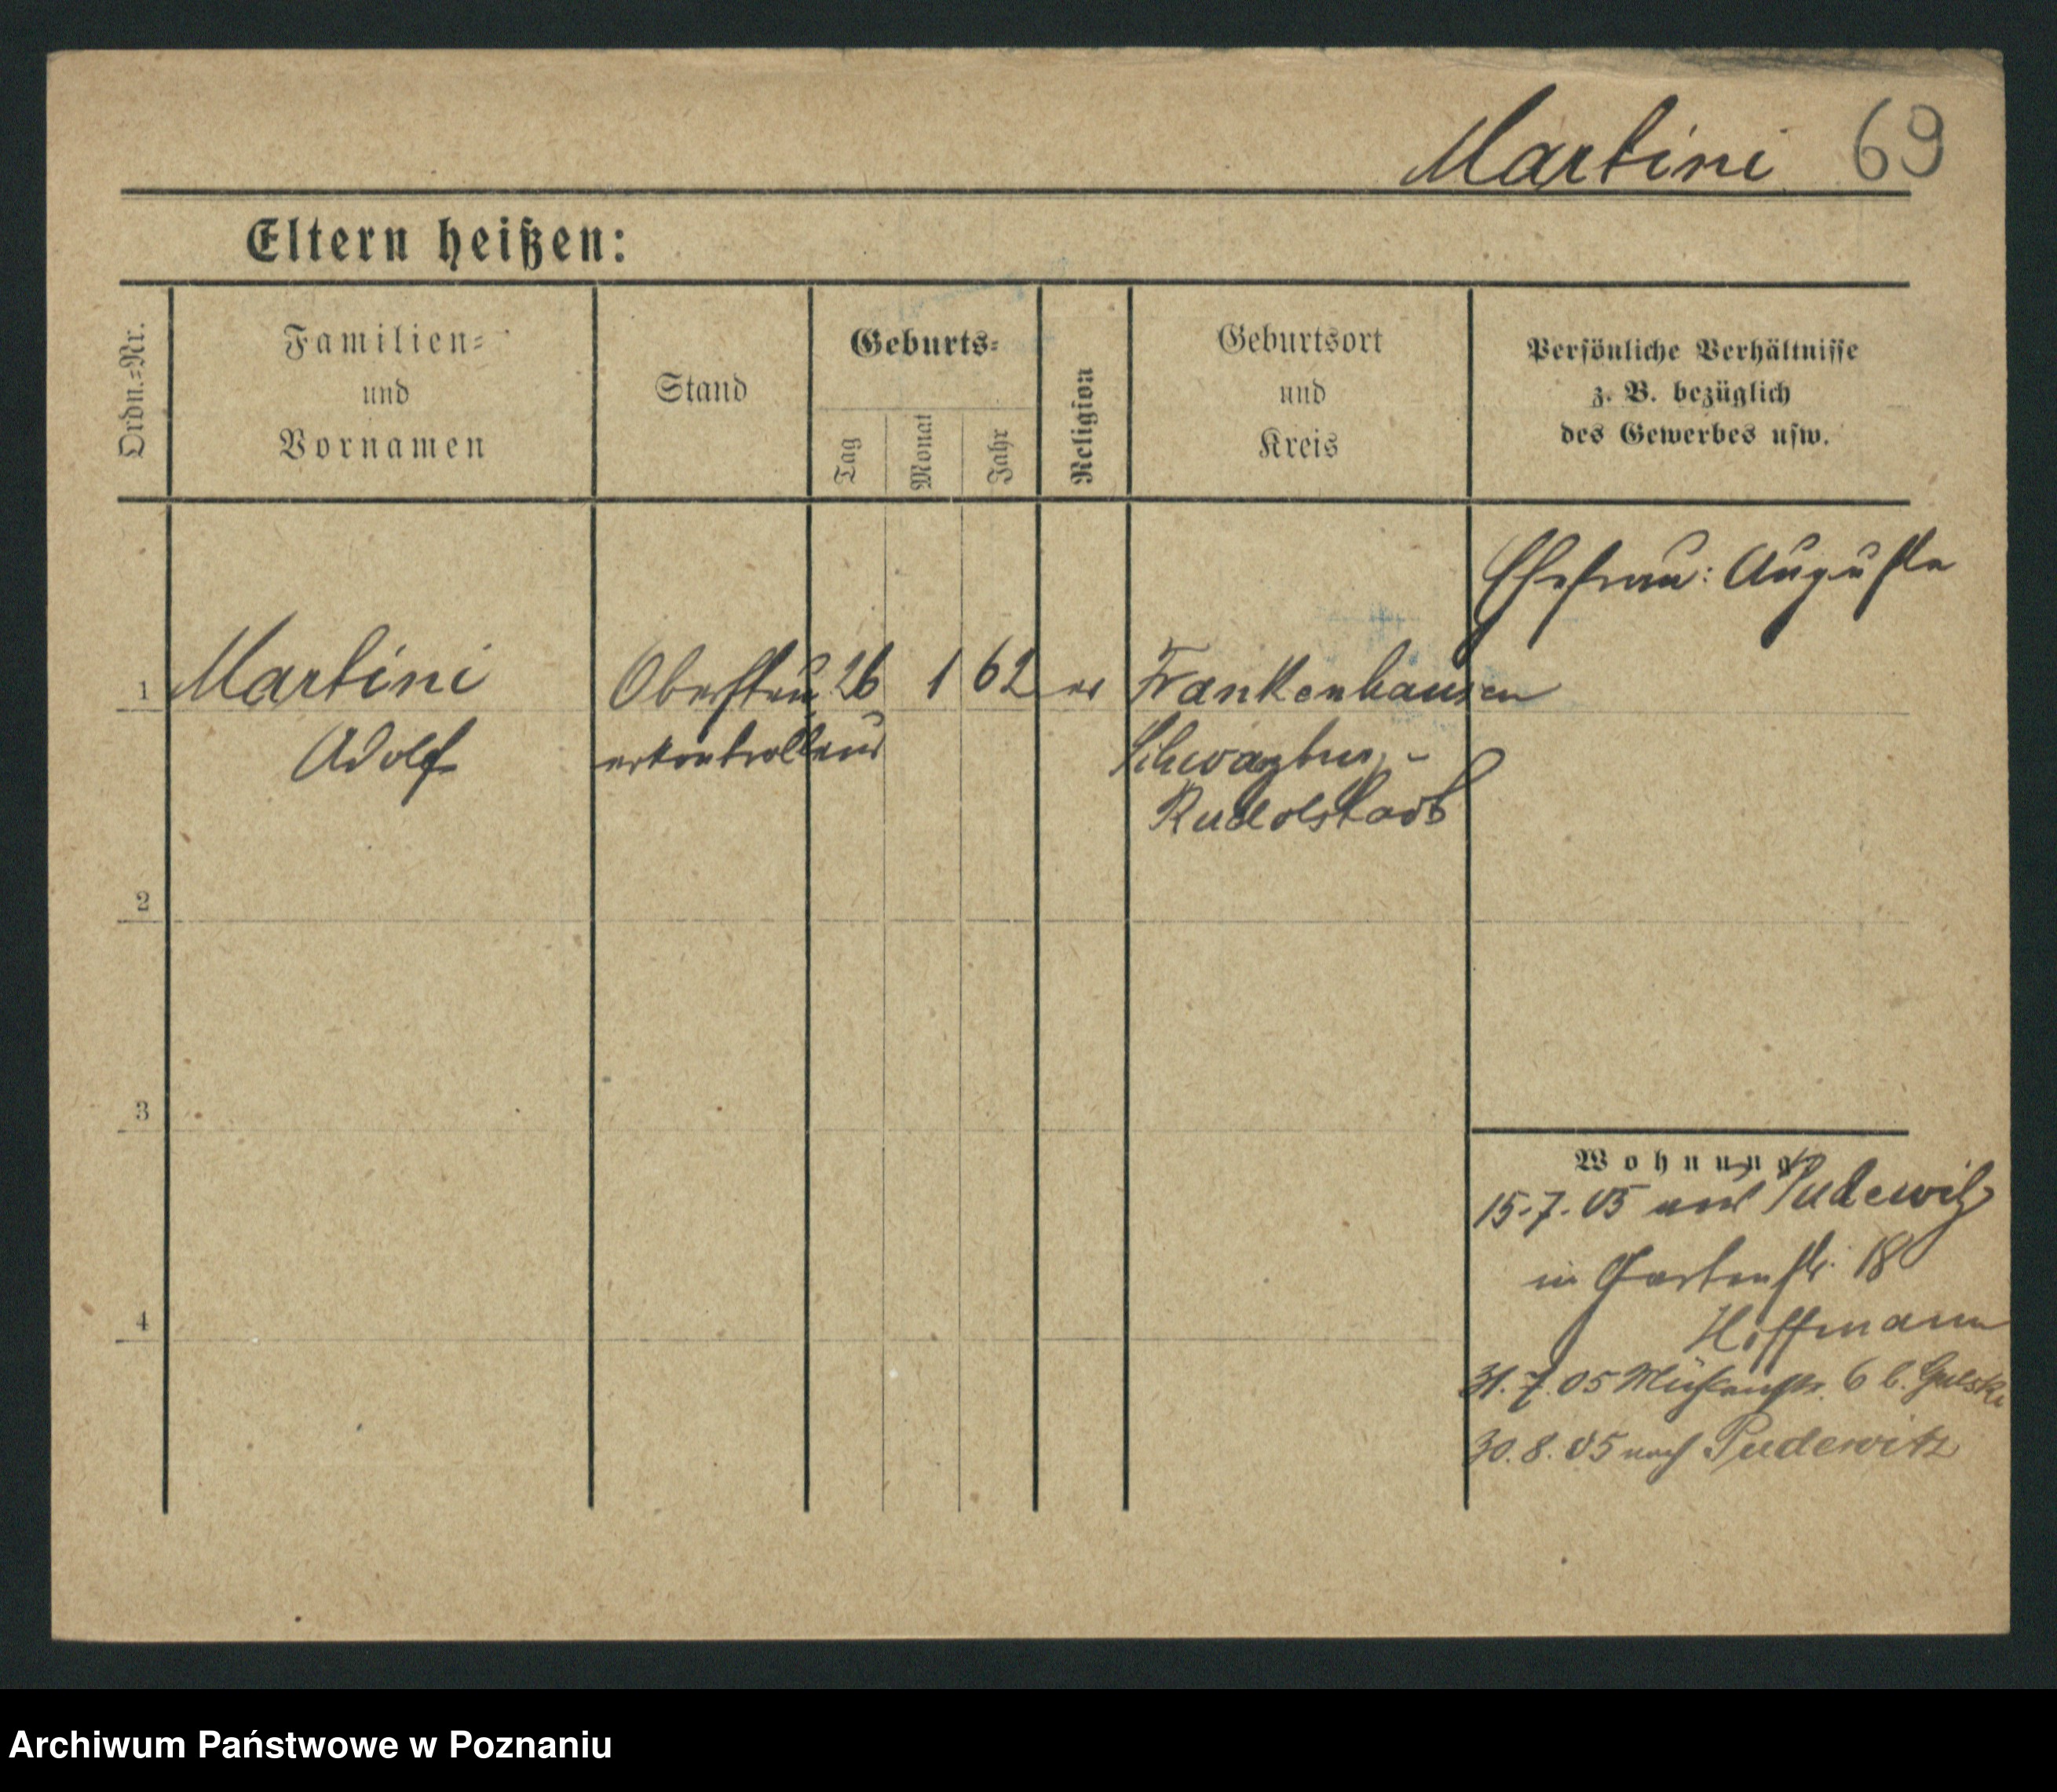 Martini 69
Eltern heißen:
Ordn.=Nr.
Familien=
und
Vornamen
Stand
Geburts=
Tag
Monat
Jahr
Religion
Geburtsort
und
Kreis
Persönliche Verhältnisse
z. B. bezüglich
des Gewerbes usw.
Ehefrau: Auguste
1 Martini Obersteu 26 1 62 ev Frankenhausen
Adolf erkontrolleur
Rudolstadt
2
3
4
Wohnung
15.7.05 aus Pudewitz
in Gartenstr. 18
Hoffmann
31.7.05 Mühlenstr. 6 b.
30.8.05 nach Pudewitz
Archiwum Państwowe w Poznaniu